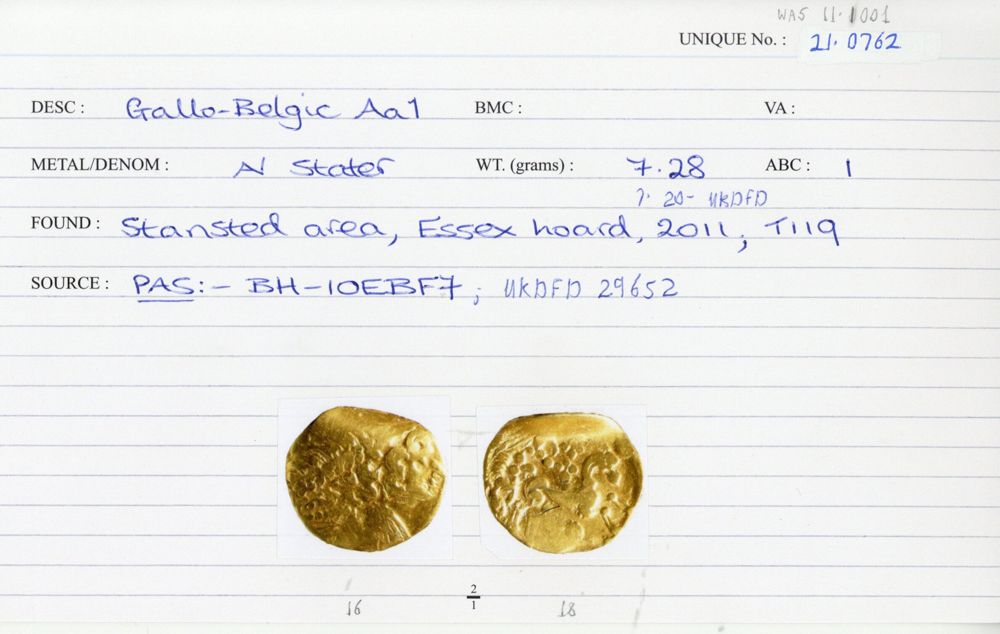 WAS 11.1001
UNIQUE No. : 21.0762
DESC : Gallo-Belgic Aa1 BMC : VA :
METAL/DENOM : AV Stater WT. (grams) : 7.28 ABC : 1
7.20- UKDFD
FOUND : Stansted area, Essex hoard, 2011; T119
SOURCE : PAS:- BH-10EBF7; UKDFD 29652
2
16 1 18